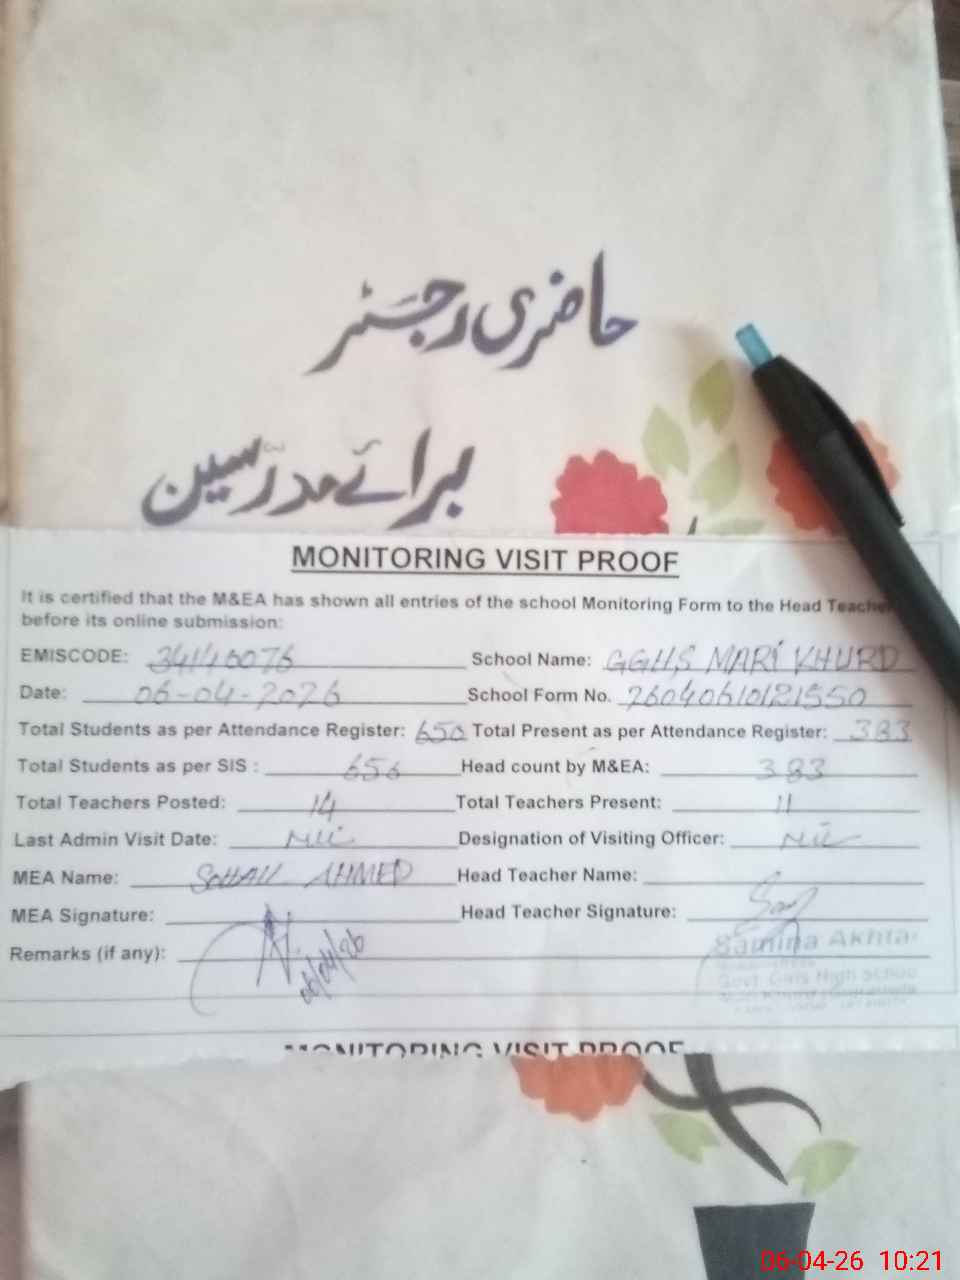 حاضری رجسٹر
برائے مدرسین
MONITORING VISIT PROOF
It is certified that the M&EA has shown all entries of the school Monitoring Form to the Head Teacher
before its online submission:
EMISCODE: 34140076 School Name: GGHS MARI KHURD
Date: 06-04-2026 School Form No. 26040610121550
Total Students as per Attendance Register: 650 Total Present as per Attendance Register: 383
Total Students as per SIS : 656 Head count by M&EA: 383
Total Teachers Posted: 14 Total Teachers Present: 11
Last Admin Visit Date: Nil Designation of Visiting Officer: Nil
MEA Name: SOHAIL AHMED Head Teacher Name:
MEA Signature: Head Teacher Signature:
Remarks (if any): 06/04/26 Samina Akhtar
Govt. Girls High School
MONITORING VISIT PROOF
06-04-26 10:21